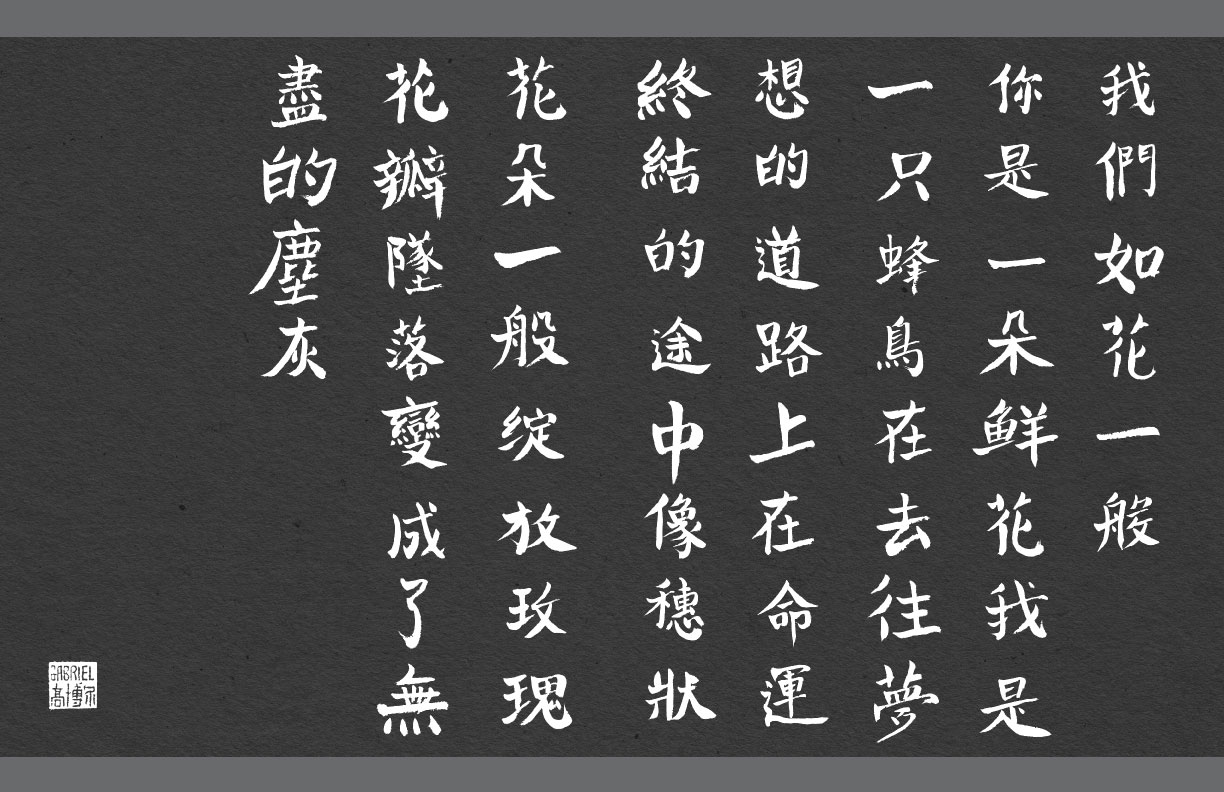 我們如花一般
你是一朵鮮花我是
一只蜂鳥在去往夢
想的道路上在命運
終結的途中像穗狀
花朵一般綻放玫瑰
花瓣墜落變成了無
盡的塵灰
GABRIEL
高博尔